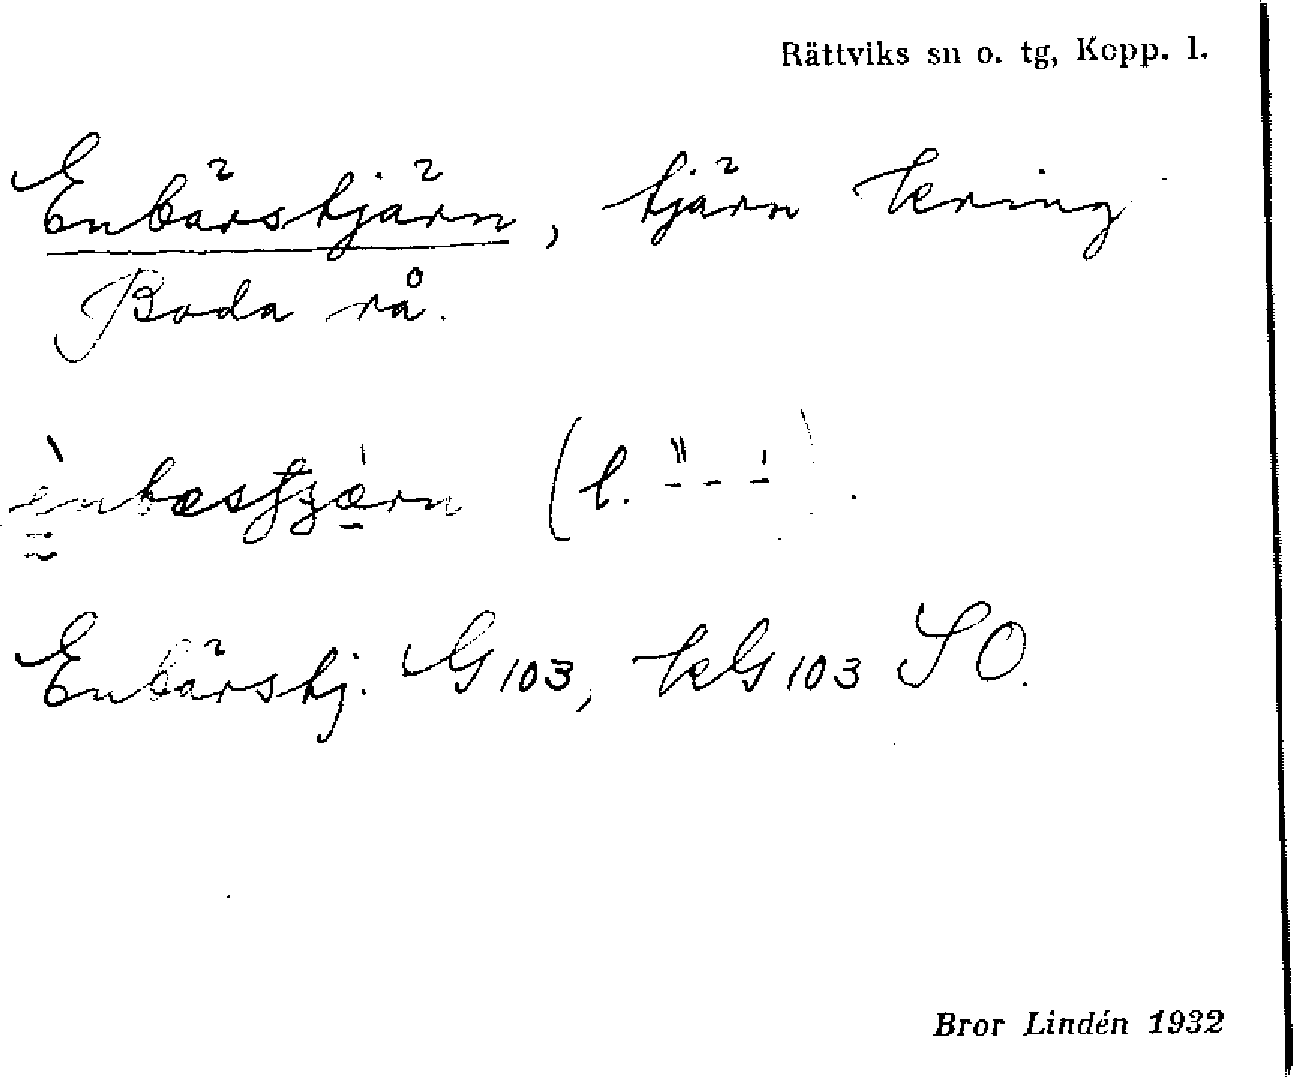 Rättviks sn o. tg, Kopp. l.
Enbärstjärn, tjärn kring
Boda rå.
(l.
Enbärstj. G 103, kG 103 SO.
Bror Lindén 1932